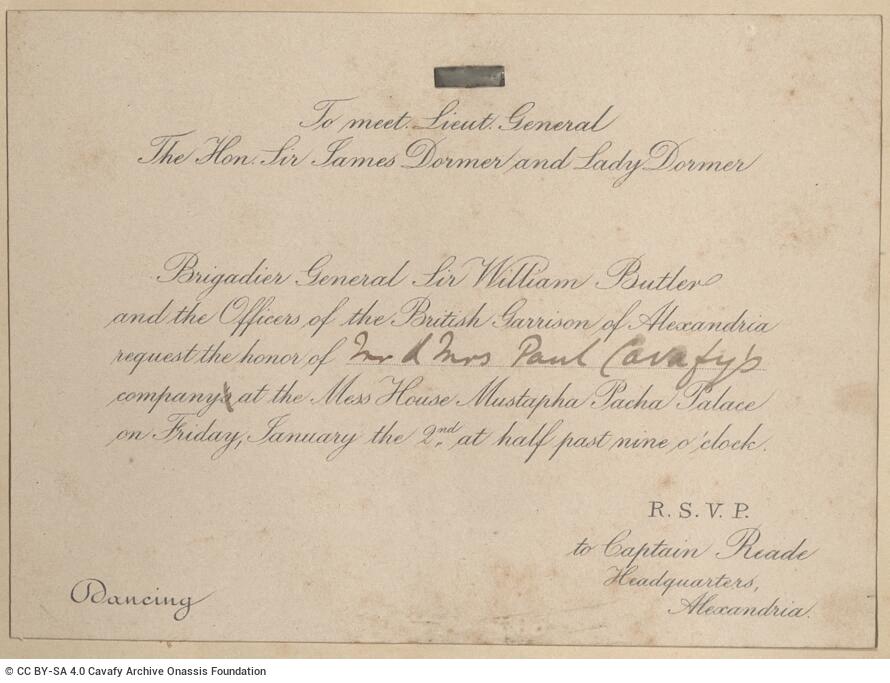 To meet Lieut. General
The Hon. Sir James Dormer and Lady Dormer
Brigadier General Sir William Butler
and the Officers of the British Garrison of Alexandria
request the honor of Mr & Mrs Paul Cavafy's
company at the Mess House Mustapha Pacha Palace
on Friday, January the 2nd. at half past nine o'clock.
R. S. V. P.
to Captain Reade
Headquarters,
Alexandria.
Dancing
© CC BY-SA 4.0 Cavafy Archive Onassis Foundation